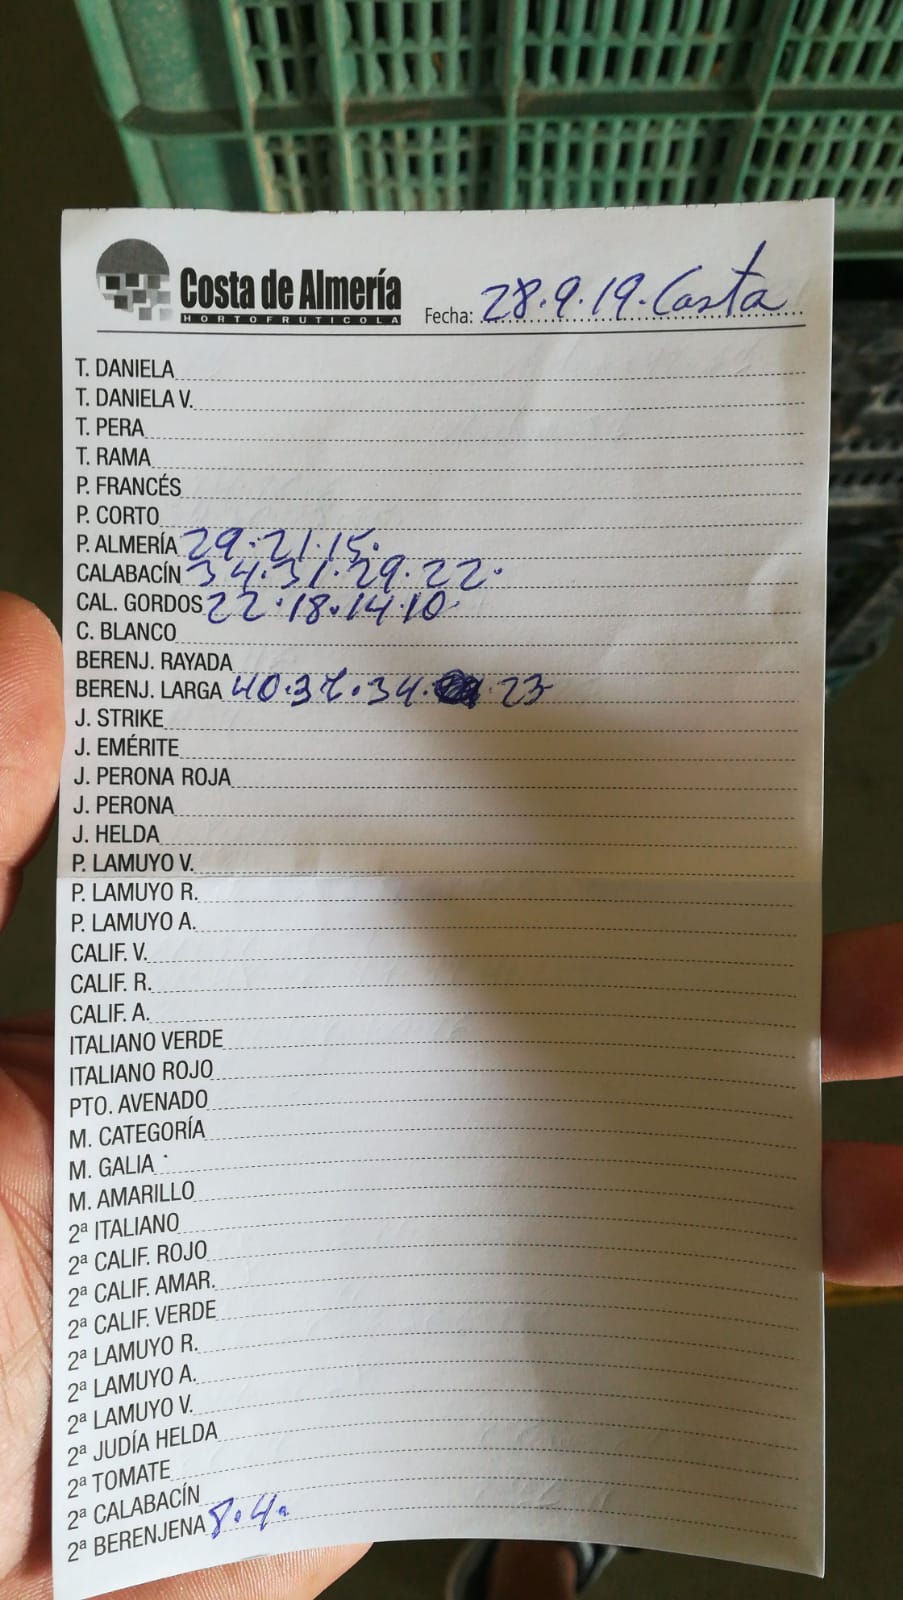 Costa de Almería
HORTOFRUTICOLA
Fecha: 28.9.19. Costa
T. DANIELA
T. DANIELA V.
T. PERA
T. RAMA
P. FRANCÉS
P. CORTO
P. ALMERÍA 29.21.15.
CALABACÍN 34.31.29.22.
CAL. GORDOS 22.18.14.10
C. BLANCO
BERENJ. RAYADA
BERENJ. LARGA 40.37.34. 23
J. STRIKE
J. EMÉRITE
J. PERONA ROJA
J. PERONA
J. HELDA
P. LAMUYO V.
P. LAMUYO R.
P. LAMUYO A.
CALIF. V.
CALIF. R.
CALIF. A.
ITALIANO VERDE
ITALIANO ROJO
PTO. AVENADO
M. CATEGORÍA
M. GALIA
M. AMARILLO
2ª ITALIANO
2ª CALIF. ROJO
2ª CALIF. AMAR.
2ª CALIF. VERDE
2ª LAMUYO R.
2ª LAMUYO A.
2ª LAMUYO V.
2ª JUDÍA HELDA
2ª TOMATE
2ª CALABACÍN
2ª BERENJENA 8.4.